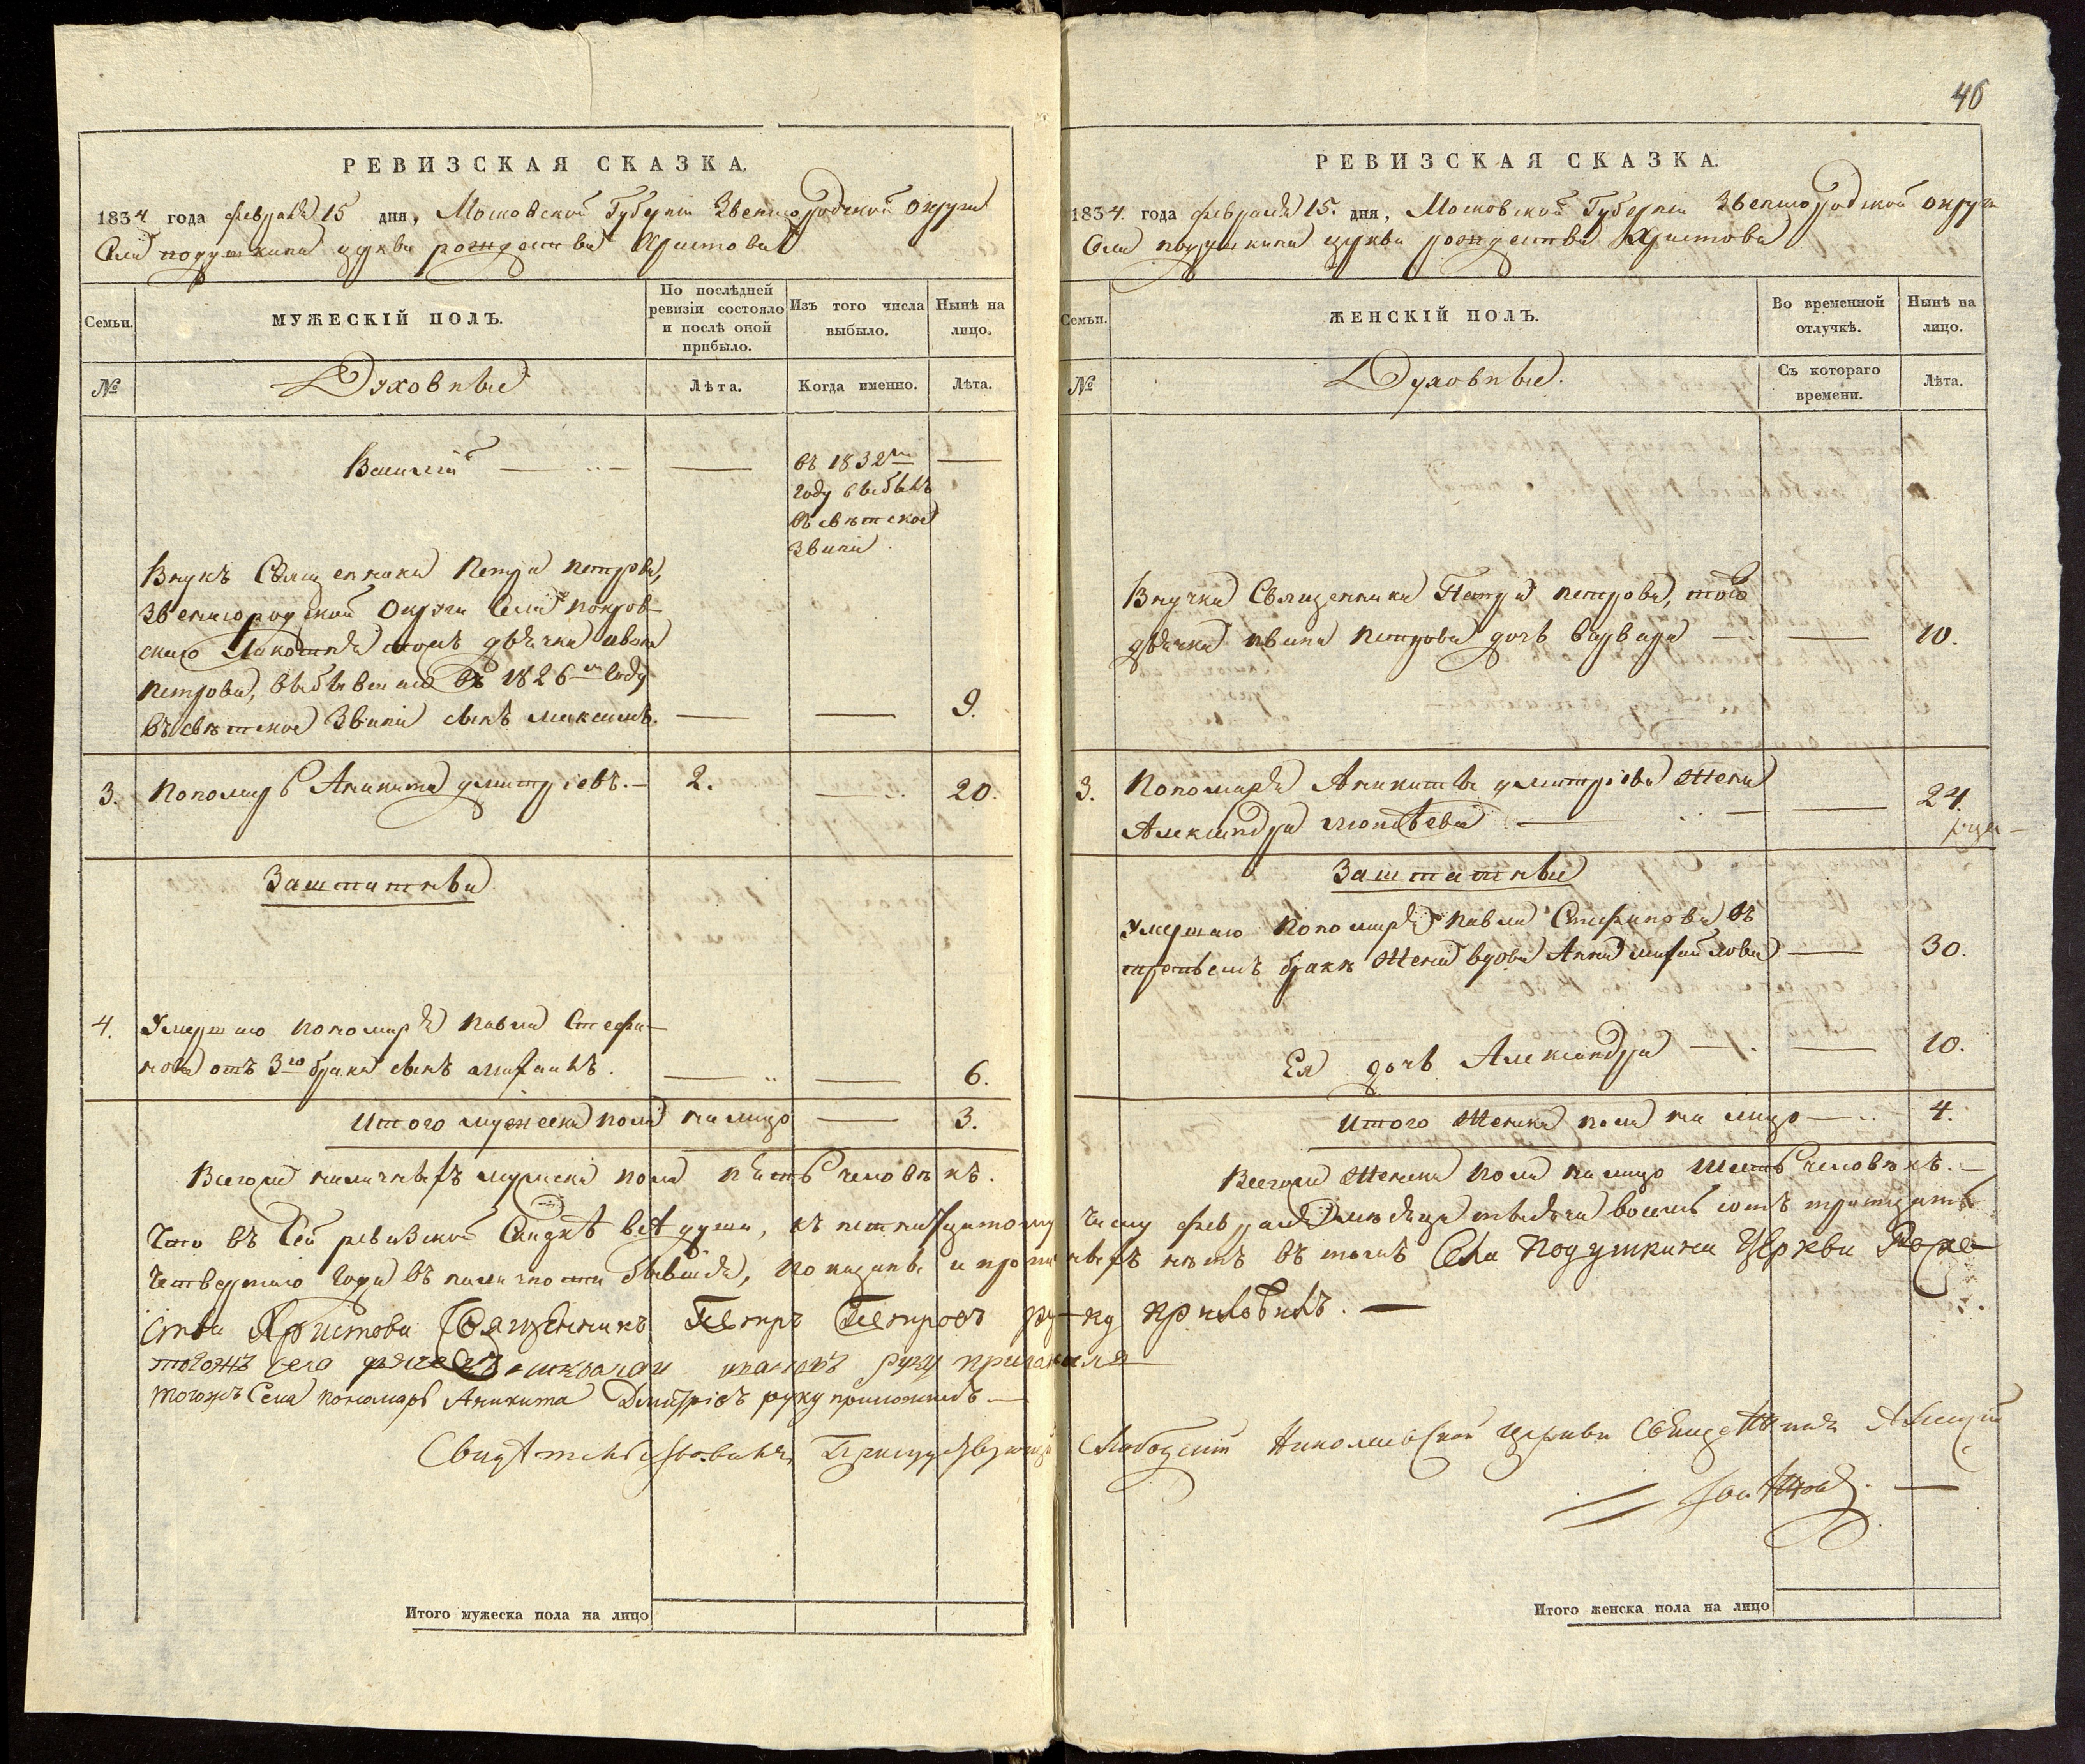 РЕВИЗСКАЯ СКАЗКА.
1834 года февраля 15 дня, Московской Губерніи Звенигородской округи
Села подушкина церкви рождества Христова
Семьи.
МУЖЕСКІЙ ПОЛЪ.
По послѣдней
ревизіи состояло
и послѣ оной
прибыло.
Изъ того числа
выбыло.
Нынѣ на
лицо.
№
Духовные
Лѣта.
Когда именно.
Лѣта.
Василій
въ 1832м
году выбылъ
въ свѣтское
званіе
Внукъ Священника Петра петрова,
Звенигородской Округи Села покров-
скаго дьячка ивана
петрова, выбывшаго въ 1826м году
въ свѣтское званіе сынъ максимъ.
9.
3. Пономарь Аникита дмитріевъ.
2.
20.
Заштатные
4. Умершаго пономаря павла Стефа-
нова отъ 3го брака сынъ михаилъ.
6.
Итого мужеска пола на лицо
3.
Всего наличныхъ мужеска пола пять человѣкъ.
Что въ сей ревизской Сказкѣ всѣ души, къ пятнадцатому
четвертаго года въ наличности бывшія, показаны и про
ства Христова Священникъ Петръ Петровъ ру
тогожъ села руку приложилъ
тогожъ Села пономарь Аникита Дмитріевъ руку приложилъ.
Свидѣтельствовалъ
Итого мужеска пола на лицо
46
РЕВИЗСКАЯ СКАЗКА.
1834. года февраля 15. дня, Московской Губерніи Звенигородской округи
Села подушкина церкви рождества Христова
Семьи.
ЖЕНСКІЙ ПОЛЪ.
Во временной
отлучкѣ.
Нынѣ на
лицо.
№
Духовные.
Съ котораго
времени.
Лѣта.
Внучка Священника Петра петрова, того
дьячка ивана петрова дочь варвара
10.
3. Пономаря Аникиты дмитріева жена
Александра
24.
Заштатные
Умершаго пономаря павла Стефанова въ
третьемъ бракѣ жена вдова Анна михайлова
30.
Ея дочь Александра
10.
Итого женска пола на лицо
4.
Всего женска пола на лицо шесть человѣкъ.
числу февраля мѣсяца тысяча восемь сотъ тритцать
нѣтъ въ томъ Села Подушкина Церкви Рожде
ку приложилъ.
Слободский Николаевской церкви Священникъ Алексій
Итого женска пола на лицо